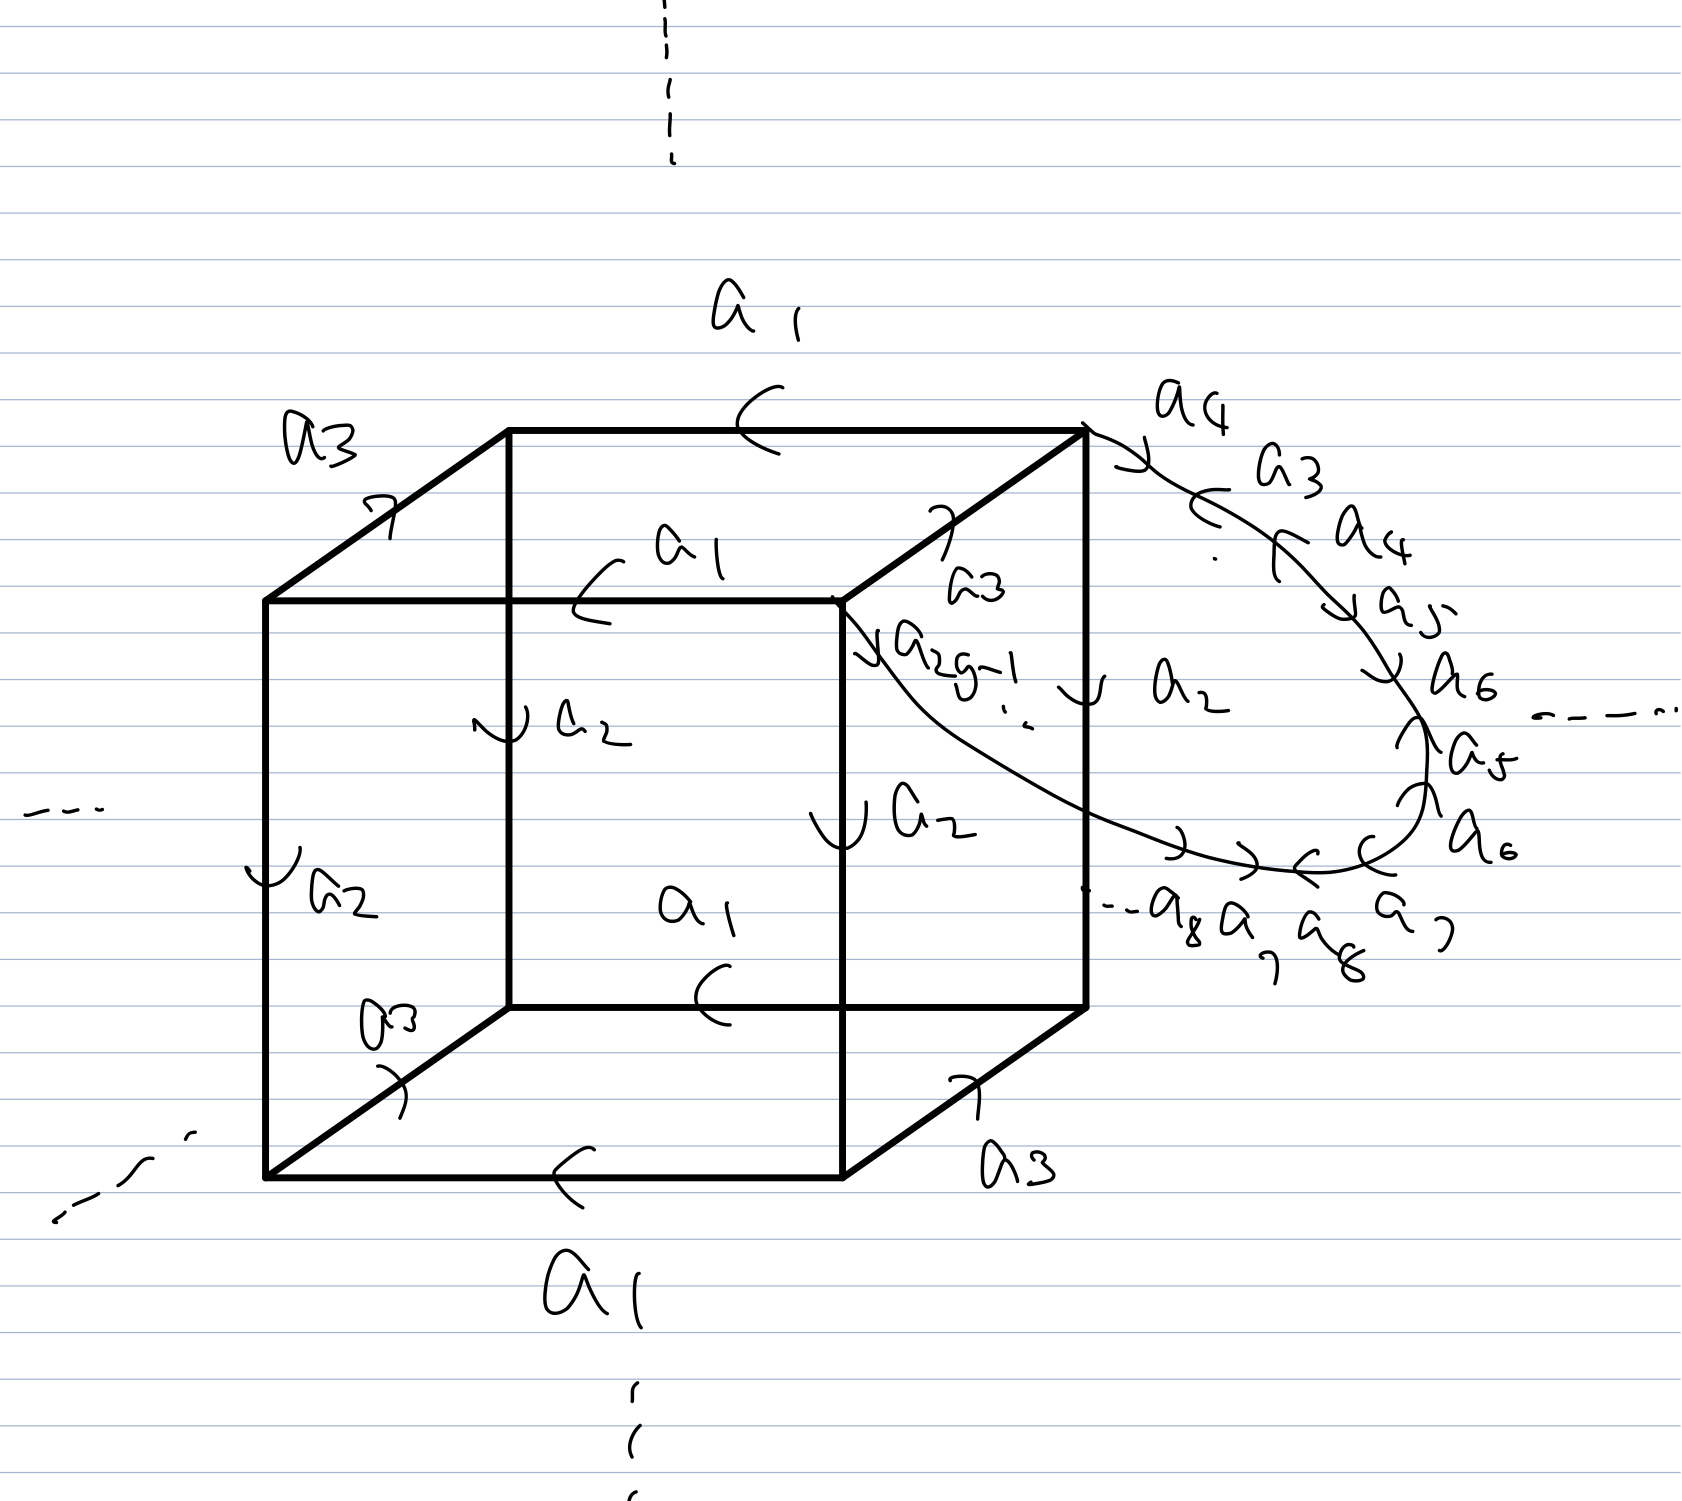 a1
a4
a3
a3
a4
a1
a3
a5
a2g-1
a6
a2
a2
a5
a2
a6
a2
a1
a8 a7 a8 a7
a3
a3
a1